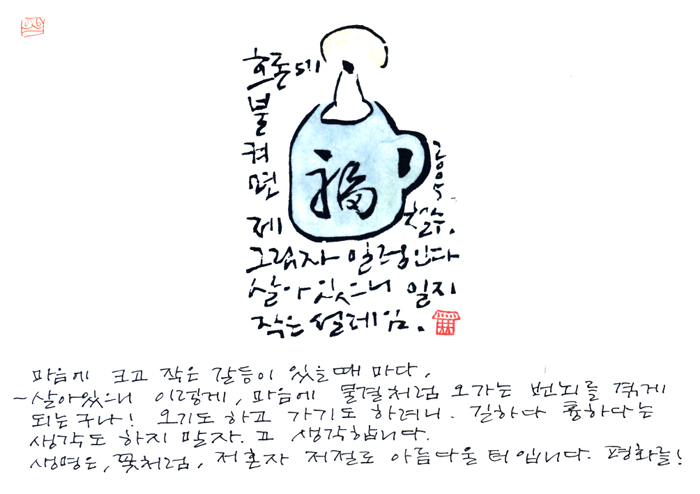 호롱에
불
켜
면
제
그림자 일렁인다
살아 있으니 일지
작은 설레임.
福
2005
철수.
마음에 크고 작은 갈등이 있을때 마다,
~살아있으니 이렇게, 마음에 물결처럼 오가는 번뇌를 겪게
되는구나! 오기도 하고 가기도 하려니. 길하다 흉하다는
생각도 하지 말자. 고 생각합니다.
생명은, 꽃처럼, 저혼자 저절로 아름다울 터입니다. 평화를!